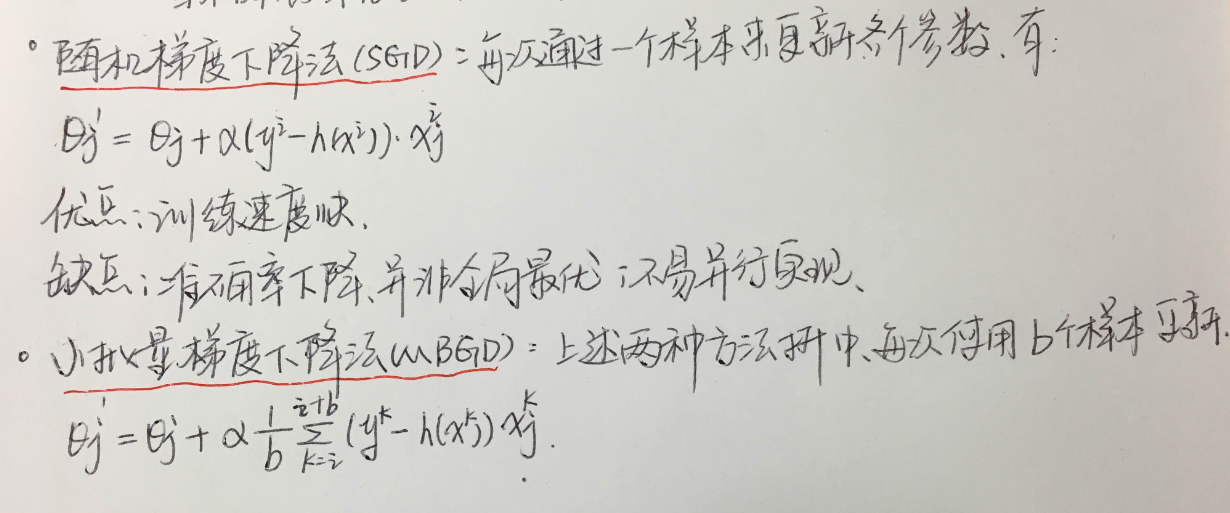 。随机梯度下降法(SGD)：每次通过一个样本来更新各个参数、有：
θj' = θj + α(y^i - h(x^i))·xj^i
优点：训练速度快.
缺点：准确率下降、并非全局最优；不易并行实现、
。小批量梯度下降法(MBGD)：上述两种方法折中、每次使用b个样本更新.
θj' = θj + α 1/b Σ_{k=i}^{i+b} (y^k - h(x^k)) xj^k.